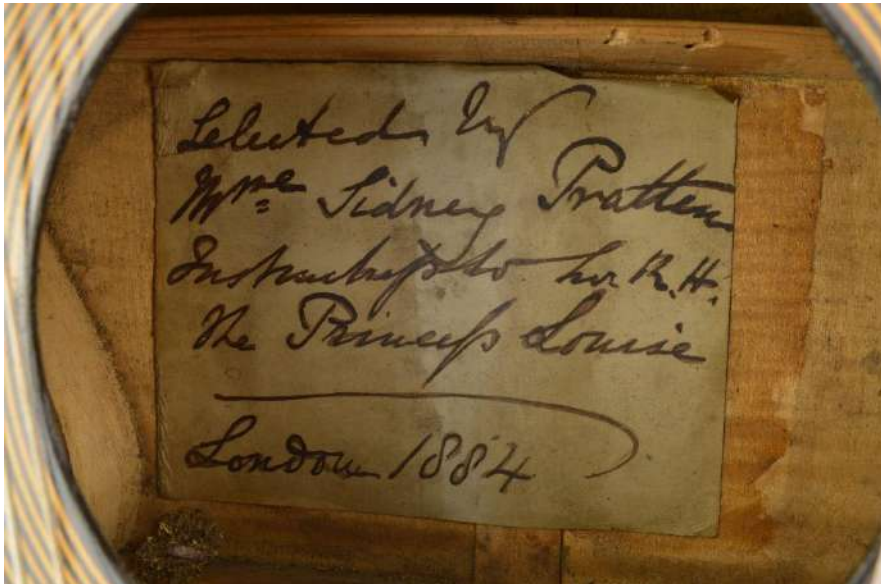 Selected by
Mme Sidney Pratten
Instructress to her R. H.
the Princess Louise
London 1884